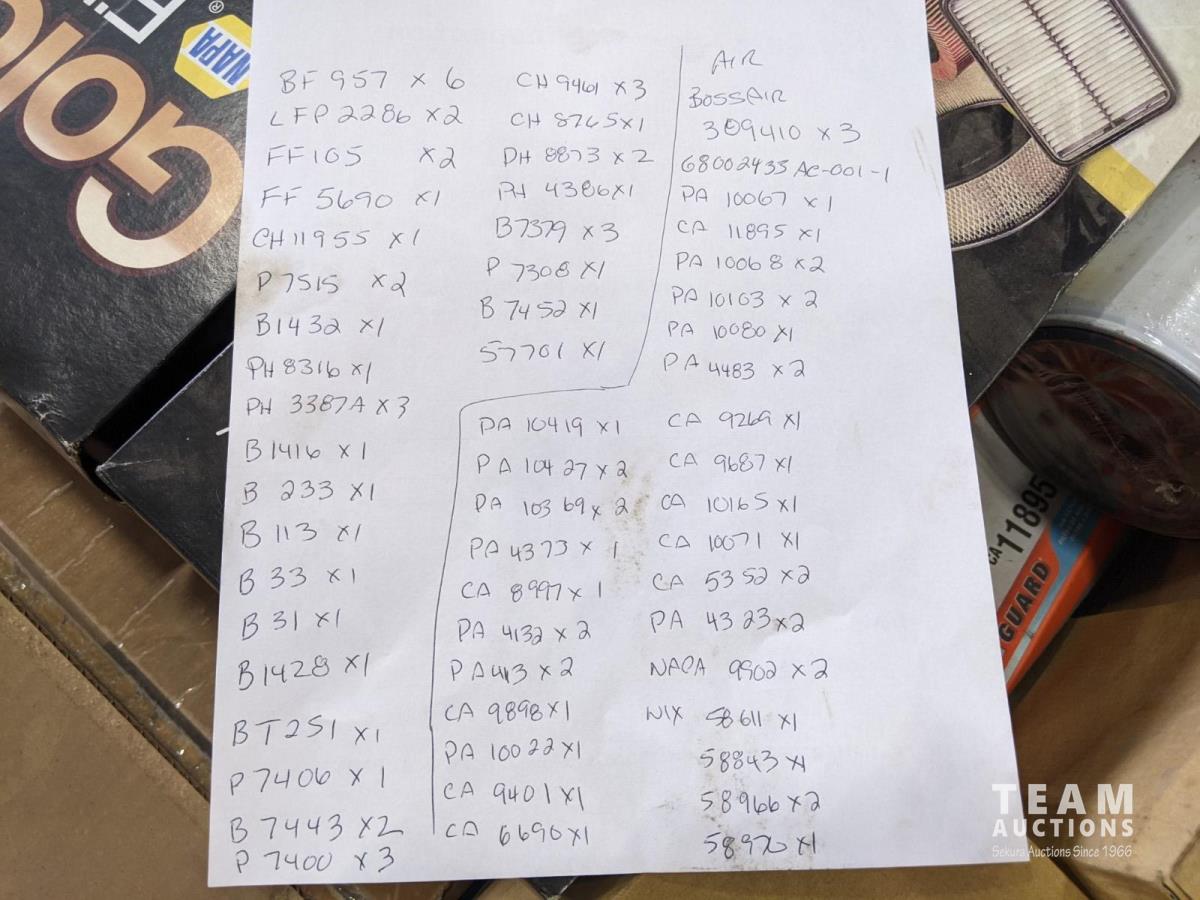 BF 957 x 6
LFP 2286 x2
FF105 x2
FF 5690 x1
CH11955 x1
P 7515 x2
B1432 x1
PH 8316 x1
PH 3387A x3
B1416 x1
B 233 x1
B 113 x1
B 33 x1
B 31 x1
B1428 x1
BT251 x1
P 7406 x 1
B 7443 x2
P 7400 x 3
CH 9461 x 3
CH 8765 x1
PH 8873 x 2
PH 4386 x1
B7379 x 3
P 7308 x1
B 7452 x1
57701 x1
AIR
BOSSAIR
309410 x 3
68002433 AC-001-1
PA 10067 x1
CA 11895 x1
PA 10068 x2
PA 10103 x 2
PA 10080 x1
PA 4483 x 2
PA 10419 x1
PA 10427 x 2
PA 10369 x 2
PA 4373 x 1
CA 8997 x 1
PA 4132 x 2
PA 413 x 2
CA 9898 x1
PA 10022 x1
CA 9401 x1
CA 6690 x1
CA 9269 x1
CA 9687 x1
CA 10165 x1
CA 10071 x1
CA 5352 x2
PA 4323 x2
NAPA 9902 x 2
WIX 58611 x1
58843 x1
58966 x2
58970 x1
NAPA
GOLD
CA11895
GUARD
TEAM
AUCTIONS
Sekura Auctions Since 1966